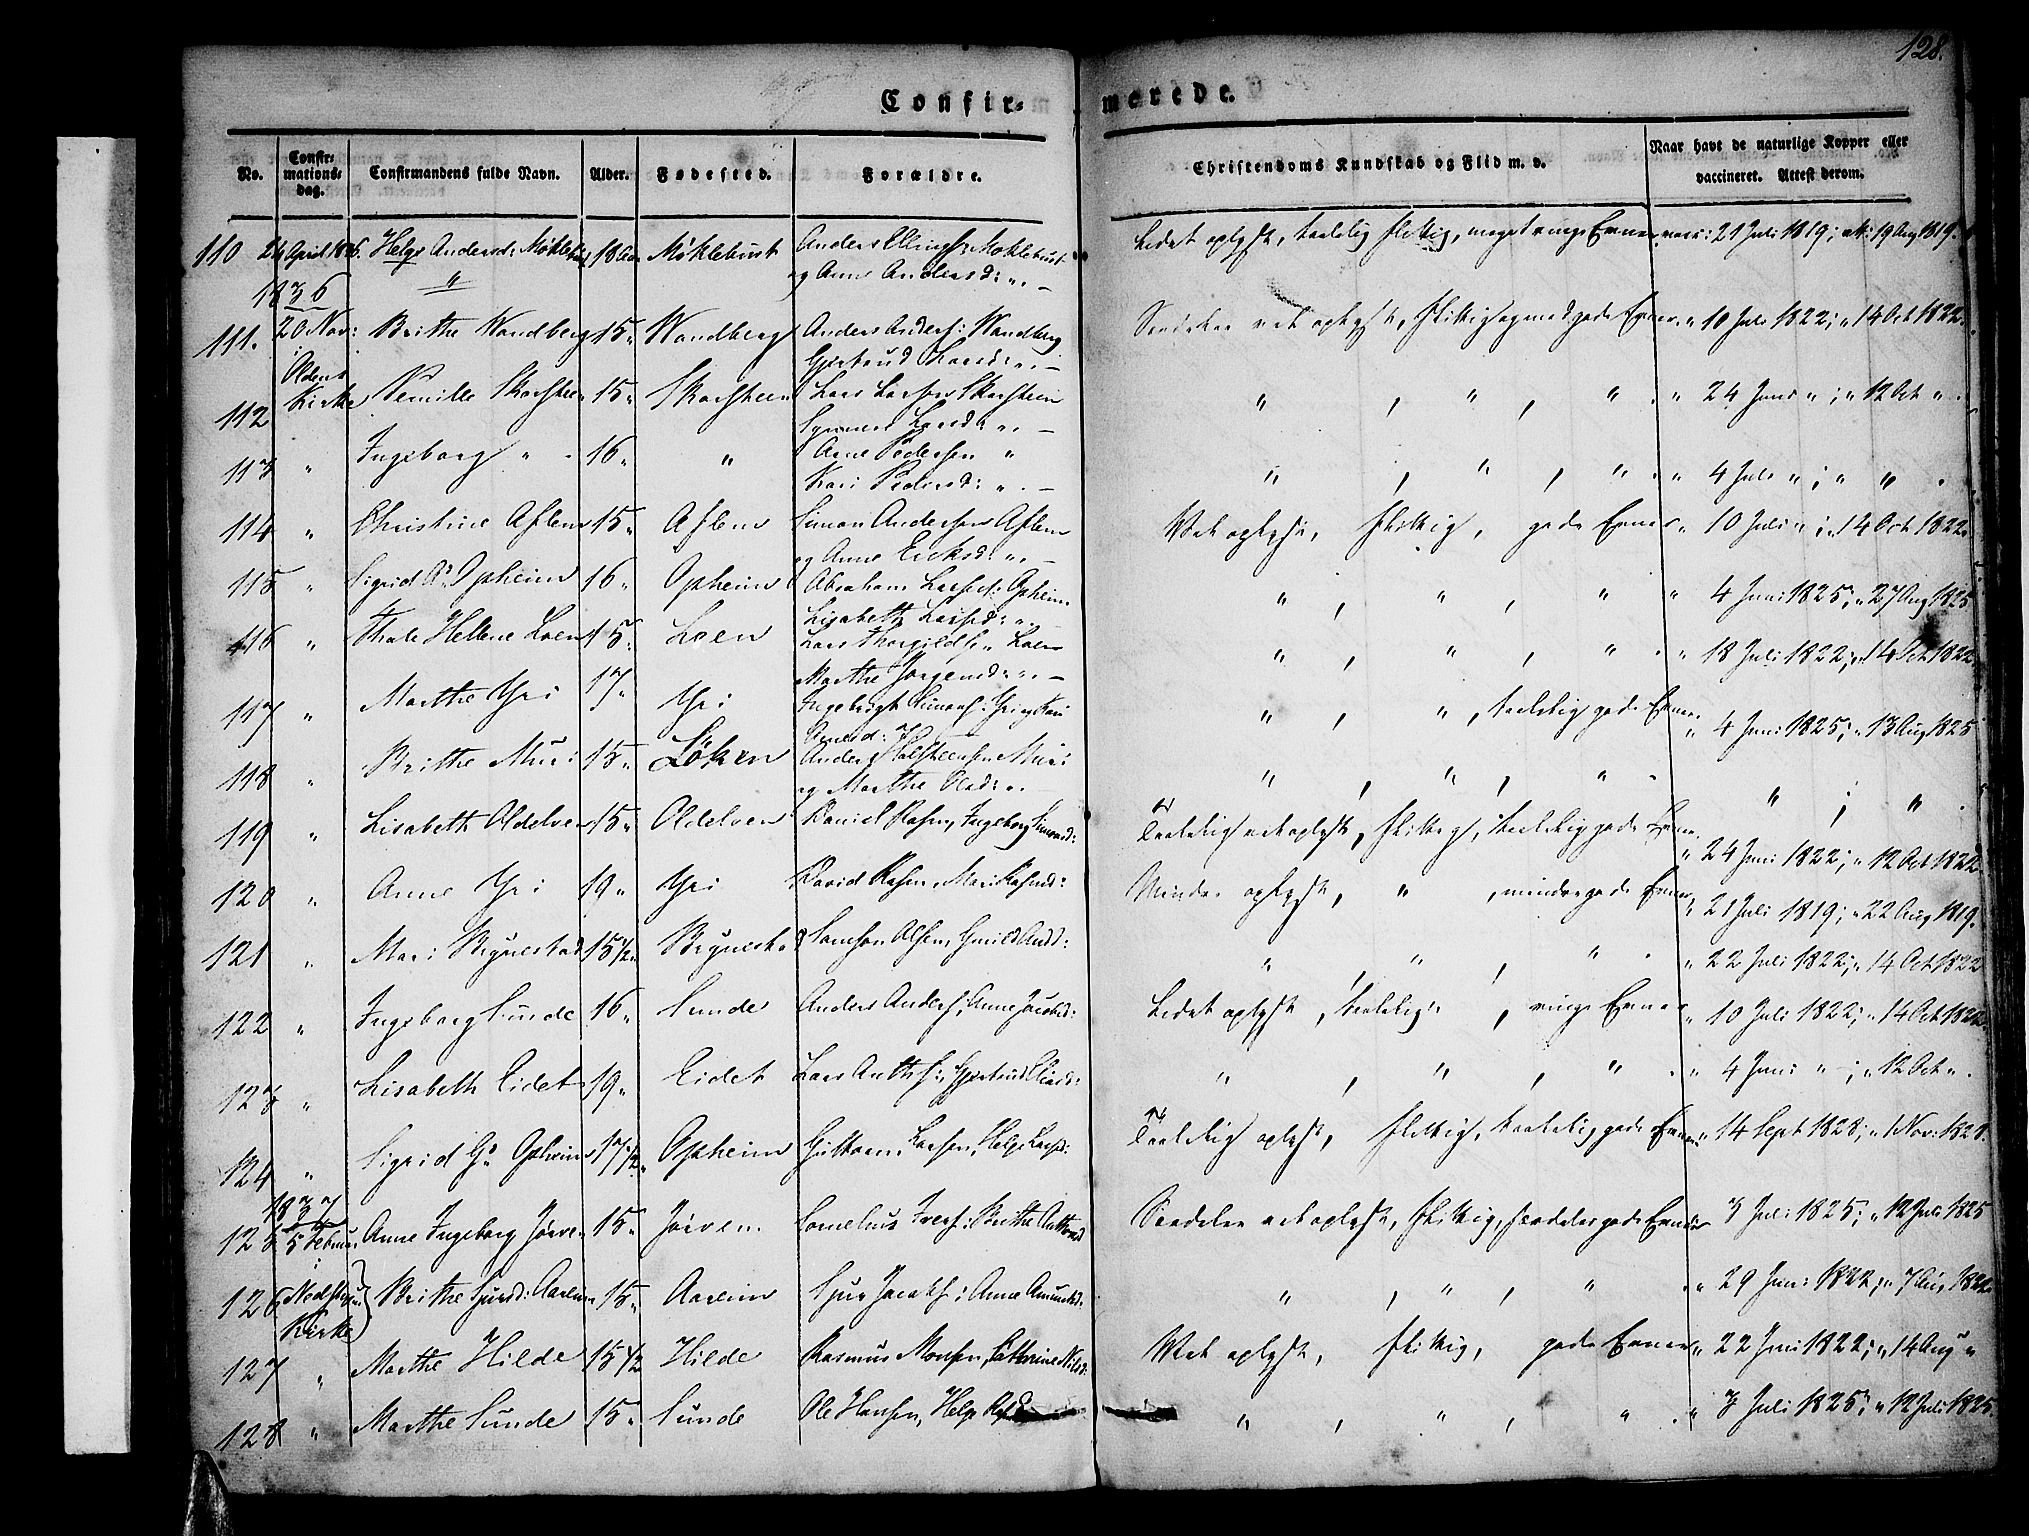 128.
Confir-
merede.
No.
Confir-
mations-
dag.
Confirmandens fulde Navn.
Alder.
Fødested.
Forældre.
Christendoms Kundskab og Flid m. v.
Naar havt de naturlige Kopper eller
vaccineret. Attest derom.
110 24 April 1836. Helge Andersd: Møklebust 18 Aar Møklebust Anders Ellings: Møklebust
og Anne Andersd: " — Lidet oplyst, taalelig flittig, meget ringe Evner. vacc: 21 Juli 1819; att: 19 Aug 1819.
1836
111. 20 Nov: Brithe Wandberg 15 " Wandberg Anders Anders: Wandberg
Gjertrud Larsd: " — Særdeles vel oplyst, flittig og med gode Evner. " 10 Juli 1822; " 14 Oct 1822.
Oldens
Kirke
112 Pernille Skarsteen 15 " Skarsteen Lars Larsen Skarsteen
Synneve Larsd: " — " , " , " . " 24 Juni " ; " 12 Oct " .
113 " Ingeborg " 16 " " Arne Pedersen "
Kari Pedersd: " — " , " , " . " 4 Juli " ; " " .
114 " Christine Aflem 15 " Aflem Simon Andersen Aflem
og Anne Ericksd: " — Vel oplyst, flittig, gode Evner " 10 Juli " ; " 14 Oct 1822.
115 " Sigrid A: Opheim 16 " Opheim Abraham Larsen: Opheim
Lisabeth Larsd: " — " , " , " " 4 Juni 1825; " 27 Aug 1825
116 " Thale Hellene Loen 15 " Loen Lars Thorgilds: Loen
Marthe Jørgensd: " — " , " , " . " 18 Juli 1822; " 14 Oct 1822
117 " Marthe Yri 17 " Yri Ingebrigt Simons: Yri og Kari
" , " , taalelig gode Evner. " 4 Juni 1825; " 13 Aug 1825
118 " Brithe Muri 15 " Løken Anders Muri
og Marthe Olsd: " — " , " , " . " ; " .
119 " Lisabeth Oldelven 15 " Oldelven Daniel Rasm:, Ingeborg Simonsd: Taalelig vel oplyst, flittig, taalelig gode Evner. " 24 Juni 1822; " 12 Oct 1822
120 " Anne Yri 19 " Yri David Rasm:, Mari Rasmd: Mindre oplyst, " , mindre gode Evner, " 21 Juli 1819; " 22 Aug 1819.
121 " Mari Brynestad 15 1/2 " Brynestad Samson Olsen, Gunild Andd: " , " , " . " 22 Juli 1822; " 14 Oct 1822
122 " Ingeborg Sunde 16 " Sunde Anders Anders:, Anne Jacobsd: Lidet oplyst, taalelig: , ringe Evner " 10 Juli 1822; " 14 Oct 1822.
123 " Lisabeth Eidet 19 " Eidet Lars Anths:, Gjertrud Eliasd: " , " , " . " 4 Juni " ; " 12 Oct " .
124 " Sigrid G: Opheim 17 1/2 " Opheim Guttorm Larsen, Helge Larsd: Taalelig oplyst, flittig, taalelig gode Evner " 14 Sept 1828; " 1 Nov: 1828.
1837
125 5 Februar Anne Ingeborg Jørven 15 " Jørven Cornelius Ivers: Brithe Anthonsd Særdeles vel oplyst, flittig, særdeles gode Evner 3 Juli 1825; " 12 Juli 1825
126 Nedstryn
Kirke Brithe Sjursd: Aarem 15 " Aarem Sjur Jacobs: Anne Amundsd: " , " , " . " 29 Juni 1822; " 7 Aug 1822
127 " Marthe Hilde 15 1/2 Hilde Rasmus Monsen, Cathrine Nilsd: Vel oplyst, flittig, gode Evner " 22 Juni 1822; " 14 Aug "
128 " Marthe Sunde 15 " Sunde Ole Hansen, Helge " , " , " . " 3 Juli 1825; " 12 Juli 1825.